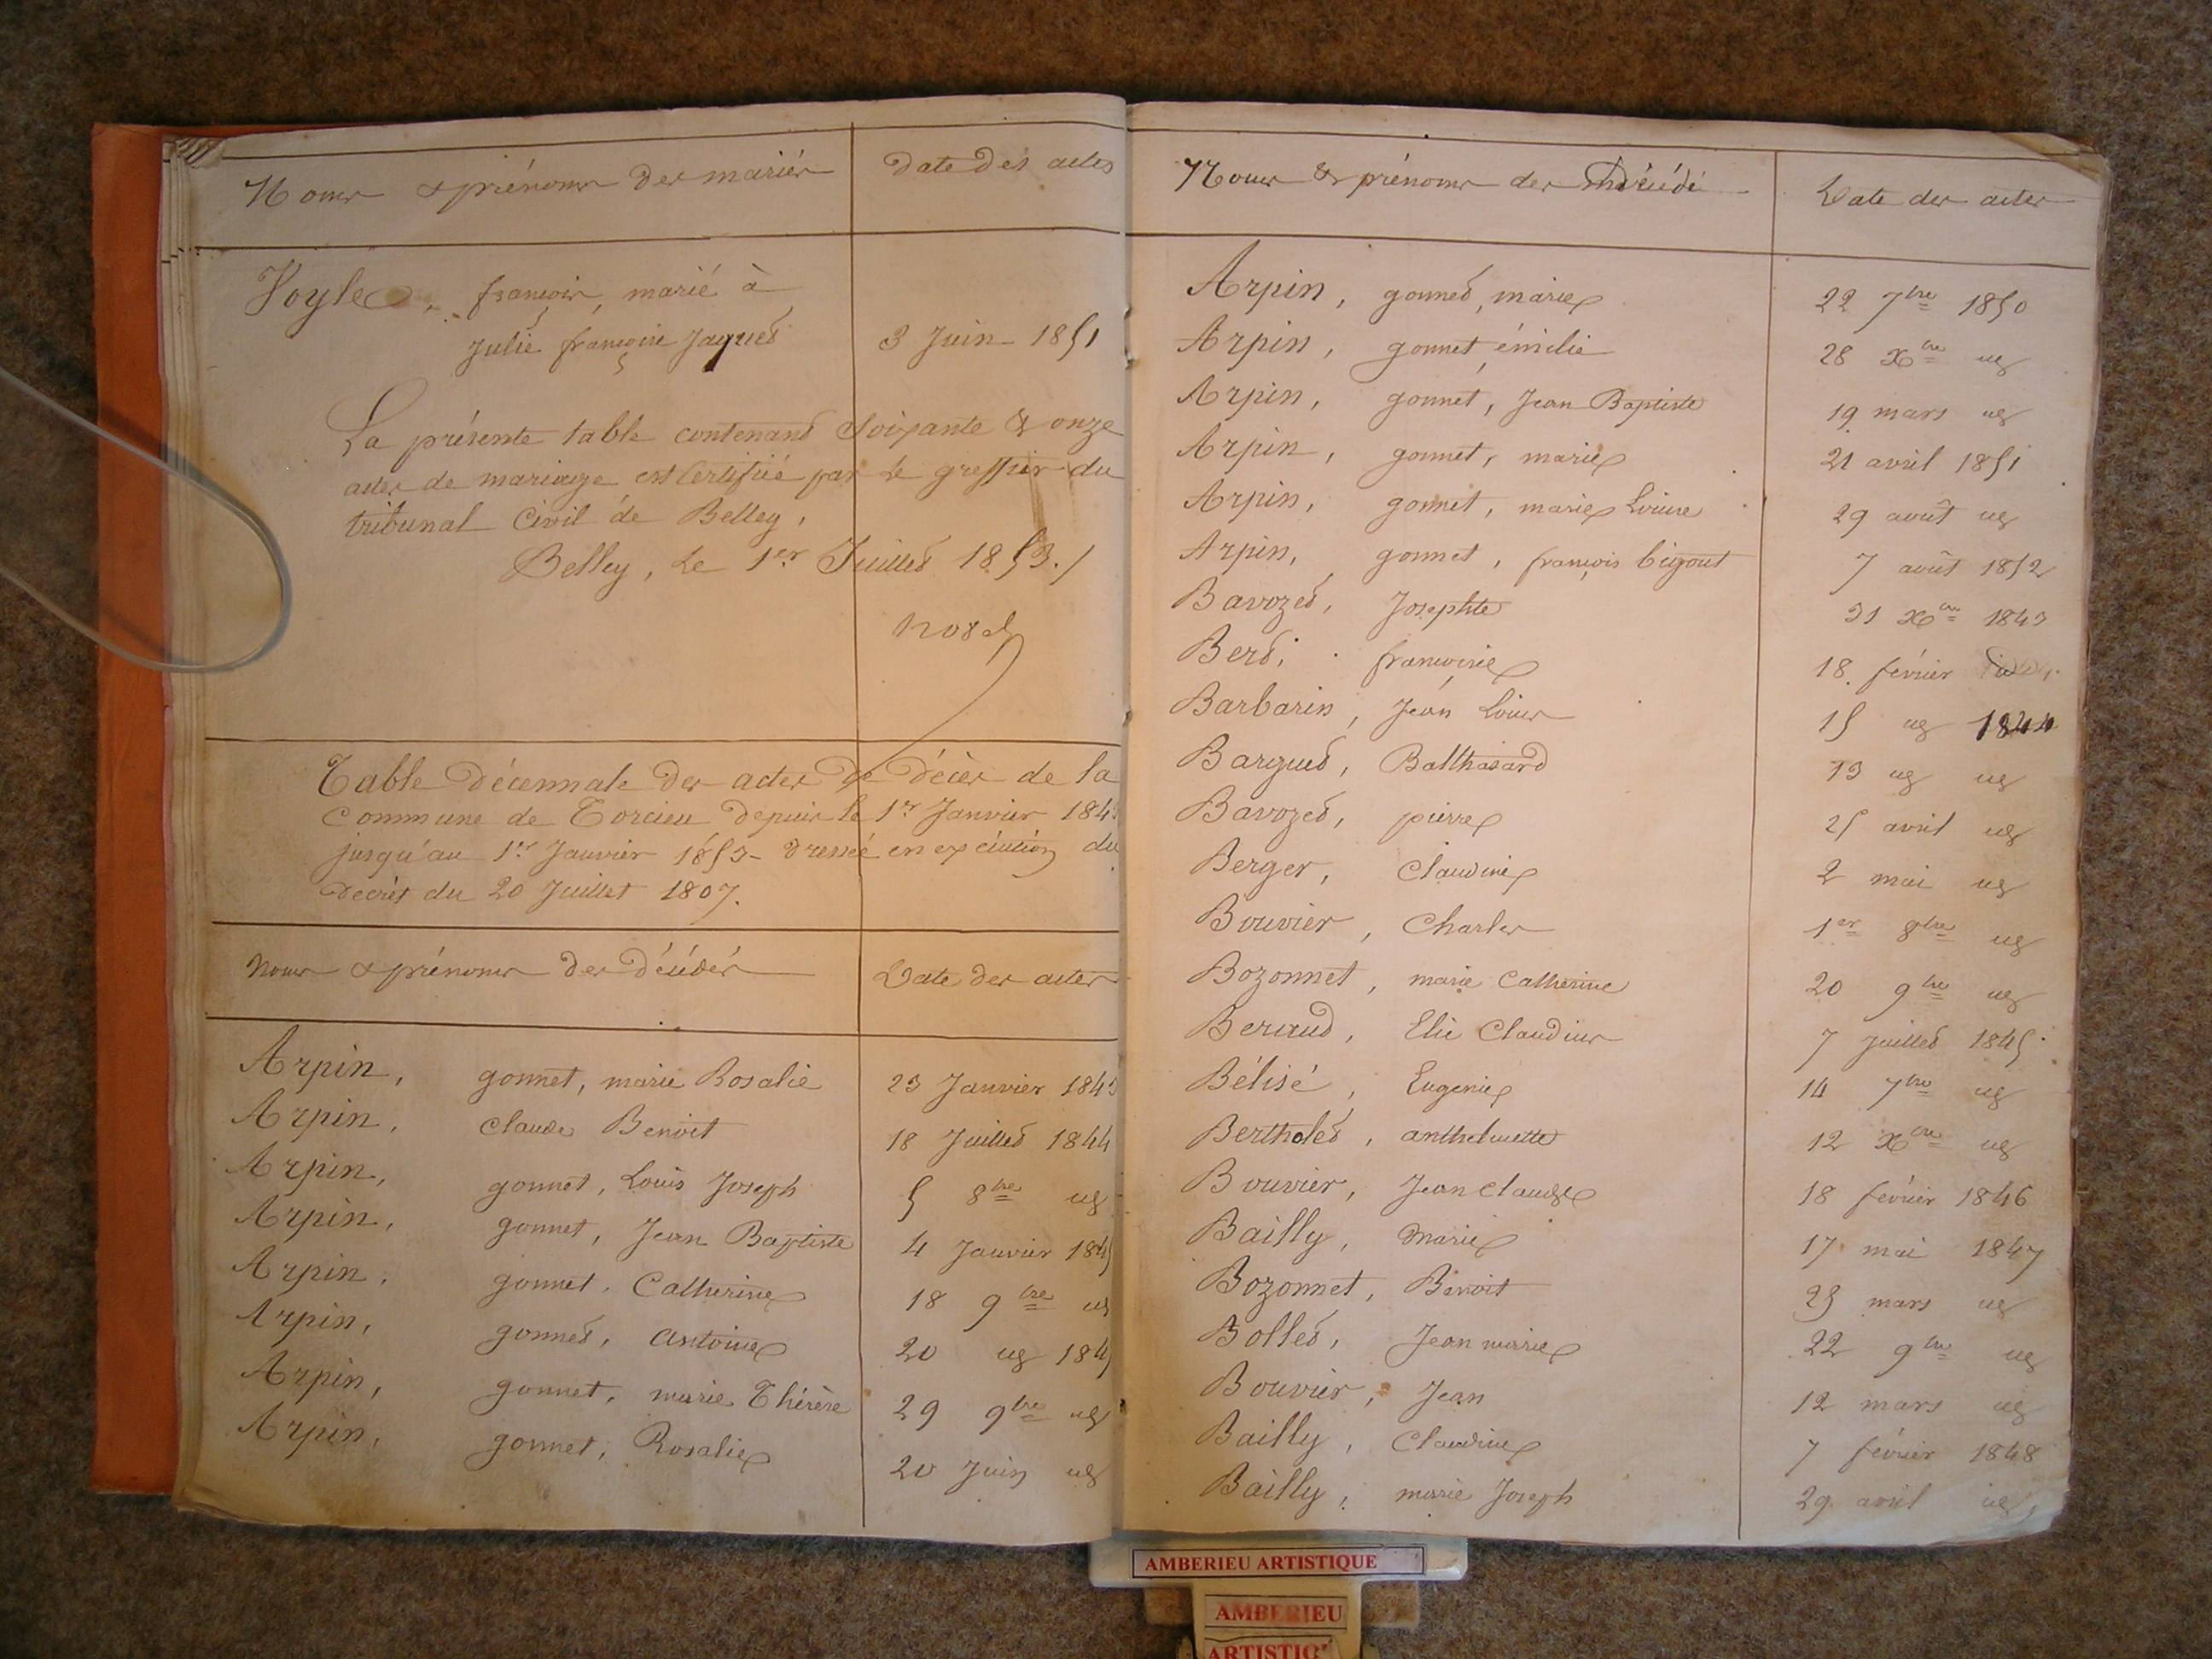 Noms & prénoms des mariés Date des actes
Voyle, françois, marié à
Julie françoise Jaquet 3 Juin 1851
La présente table contenant Soixante & onze
actes de mariage est Certifiée par Le greffier du
tribunal Civil de Belley,
Belley, Le 1er Juillet 1853./
Table Décennale des actes de Décès de la
Commune de Torcieu Depuis le 1er Janvier 184
jusqu'au 1er Janvier 1853 Dressée en exécution du
Décret du 20 Juillet 1807.
Noms & prénoms des Décédés Date des actes
Arpin, gonnet, marie Rosalie 23 Janvier 1843
Arpin, Claude Benoit 18 Juillet 1844
Arpin, gonnet, Louis Joseph 5 8bre ug
Arpin, gonnet, Jean Baptiste 4 Janvier 184
Arpin, gonnet, Catherine 18 9bre ug
Arpin, gonnet, antoine 20 ug 184
Arpin, gonnet, marie Thérèse 29 9bre ug
Arpin, gonnet, Rosalie 20 Juin ug
Noms & prénoms des Décédés Date des actes
Arpin, gonnet, marie 22 7bre 1850
Arpin, gonnet émilie 28 Xbre ug
Arpin, gonnet, Jean Baptiste 19 mars ug
Arpin, gonnet, marie 21 avril 1851
Arpin, gonnet, marie Louise 29 août ug
Arpin, gonnet, françois 7 août 1852
Bavozet, Josephte 31 Xbre 1843
Bert, françoise 18 février
Barbarin, Jean Louis 15 ug 1844
Barguet, Balthasard 13 ug ug
Bavozet, pierre 25 avril ug
Berger, Claudine 2 mai ug
Bouvier, Charles 1er 8bre ug
Bozonnet, marie Catherine 20 9bre ug
Beraud, Elie Claudius 7 Juillet 1845
Bélisé, Eugenie 14 7bre ug
Bertholet, anthelmette 12 Xbre ug
Bouvier, Jean Claude 18 février 1846
Bailly, Marie 17 mai 1847
Bozonnet, Benoit 23 mars ug
Bollet, Jean marie 22 9bre ug
Bouvier, Jean 12 mars ug
Bailly, Claudine 7 février 1848
Bailly, marie Joseph 29 avril ug
AMBERIEU ARTISTIQUE
AMBERIEU